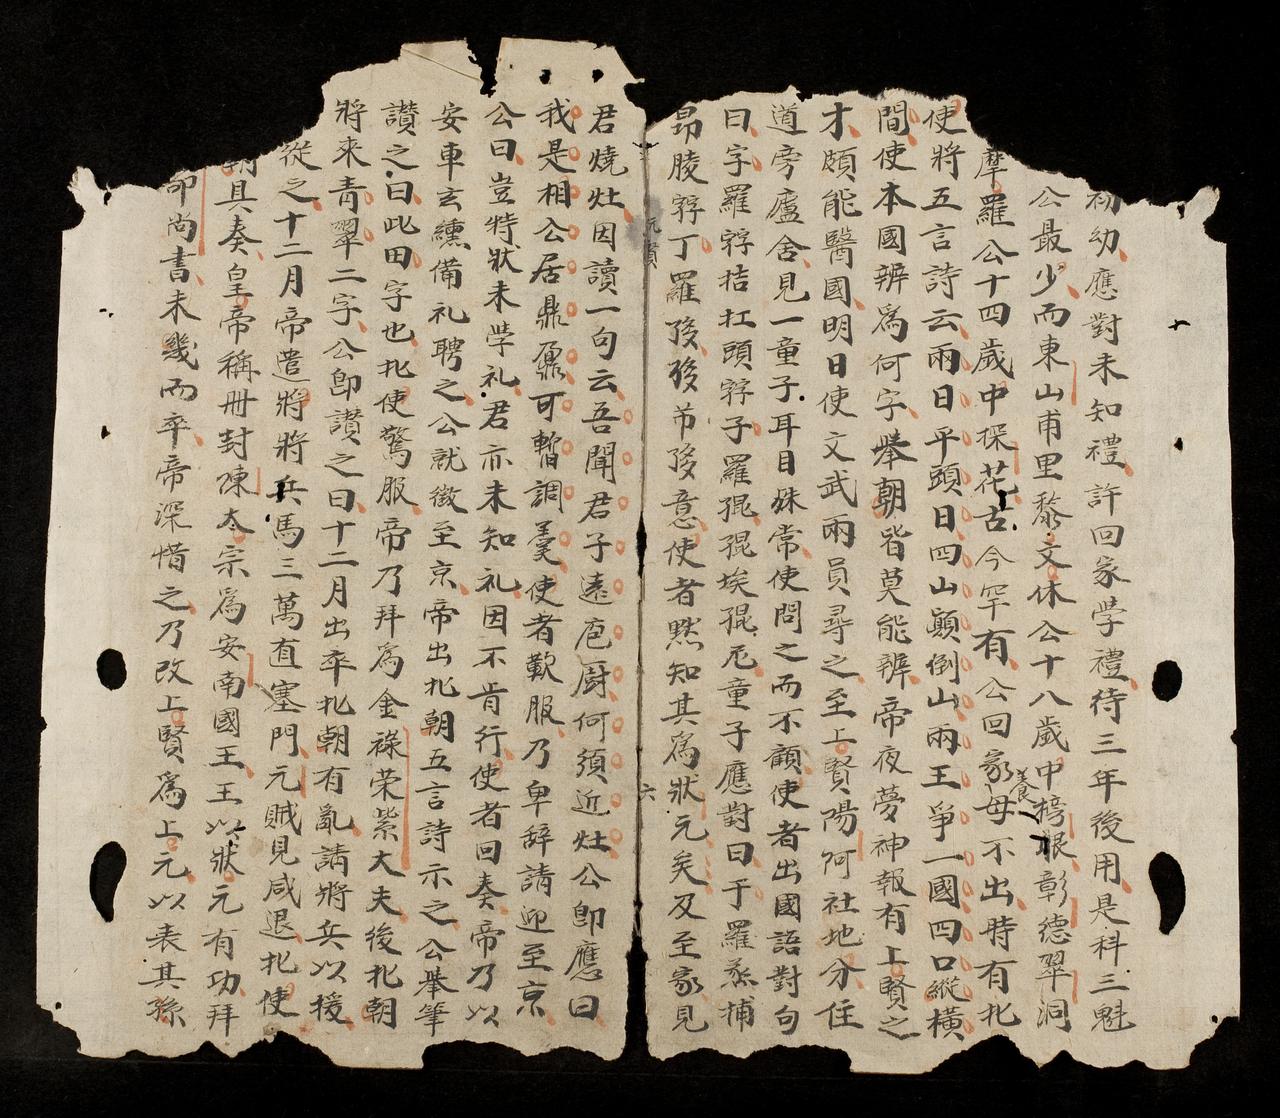 初幼應對未知禮許回家学禮待三年後用是科三魁
公最少而東山甫里黎文休公十八歲中榜眼彰德翠洞
摩羅公十四歲中探花古今罕有公回家養母不出時有北
使將五言詩云兩日平頭日四山顛倒山兩王爭一國四口縱橫
間使本國辨爲何字舉朝皆莫能辨帝夜夢神報有上賢之
才頗能醫國明日使文武兩員尋之至上賢陽阿社地分住
道旁廬舍見一童子耳目姝常使問之而不顧使者出國語對句
曰字羅拮扛頭子羅埃童子應對曰于羅蒸捕
昂䏾丁羅意使者默知其爲狀元矣及至家見
元賢
六
君燒灶因讀一句云吾聞君子遠庖厨何須近灶公卽應曰
我是相公居鼎鼐可暫調羹使者歎服乃卑辞請迎至京
公曰豈特狀未学礼君亦未知礼因不肯行使者回奏帝乃以
安車玄纁備礼聘之公就徵至京帝出北朝五言詩示之公舉筆
讚之曰此田字也北使驚服帝乃拜爲金祿荣紫大夫後北朝
將來青翠二字公卽讃之曰十二月出卒北朝有亂請將兵以援
從之十二月帝遣將將兵馬三萬直塞門元賊見咸退北使
朝具奏皇帝稱册封陳太宗爲安南國王王以狀元有功拜
卽尚書未幾而卒帝深惜之乃改上賢爲上元以表其孫